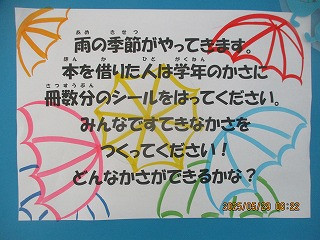 雨の季節がやってきます。
本を借りた人は学年のかさに
冊数分のシールをはってください。
みんなですてきなかさを
つくってください！
どんなかさができるかな？